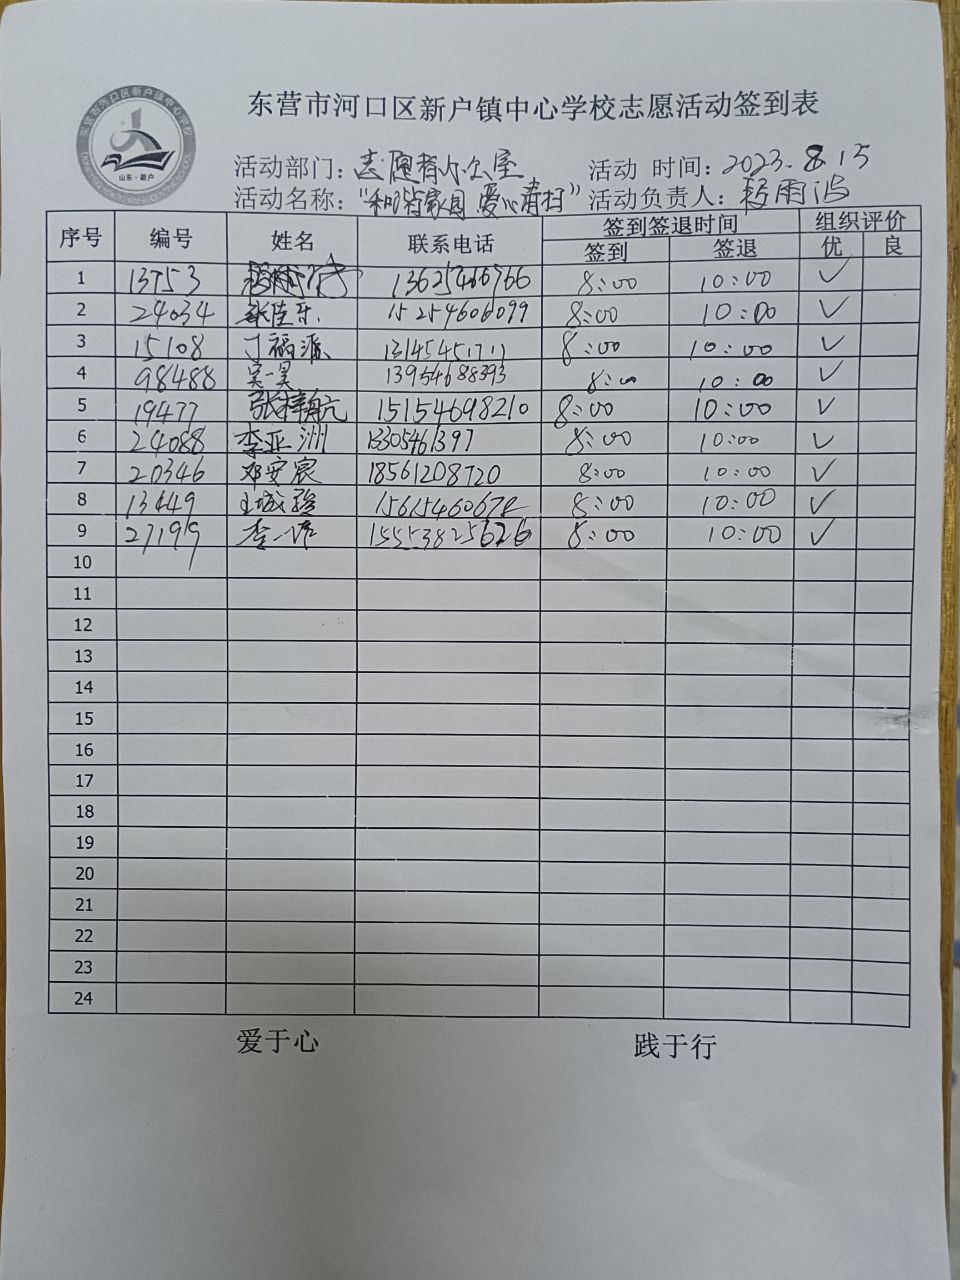 东营市河口区新户镇中心学校志愿活动签到表
东营市河口区新户镇中心学校
山东·新户
活动部门：志愿者办公室 活动 时间：2023.8.15
活动名称：“和谐家园 爱心清扫” 活动负责人：程雨鸿
序号 编号 姓名 联系电话 签到签退时间 组织评价
签到 签退 优 良
1 13753 13625466766 8:00 10:00 ✓
2 24034 张佳乐 15254606099 8:00 10:00 ✓
3 15108 丁福源 8:00 10:00 ✓
4 98488 昊 13954688393 8:00 10:00 ✓
5 19477 张梓航 15154698210 8:00 10:00 ✓
6 24088 李亚洲 13305461397 8:00 10:00 ✓
7 20346 邓安宸 18561208720 8:00 10:00 ✓
8 13449 王城骏 8:00 10:00 ✓
9 27199 李一诺 15553825626 8:00 10:00 ✓
10
11
12
13
14
15
16
17
18
19
20
21
22
23
24
爱于心 践于行